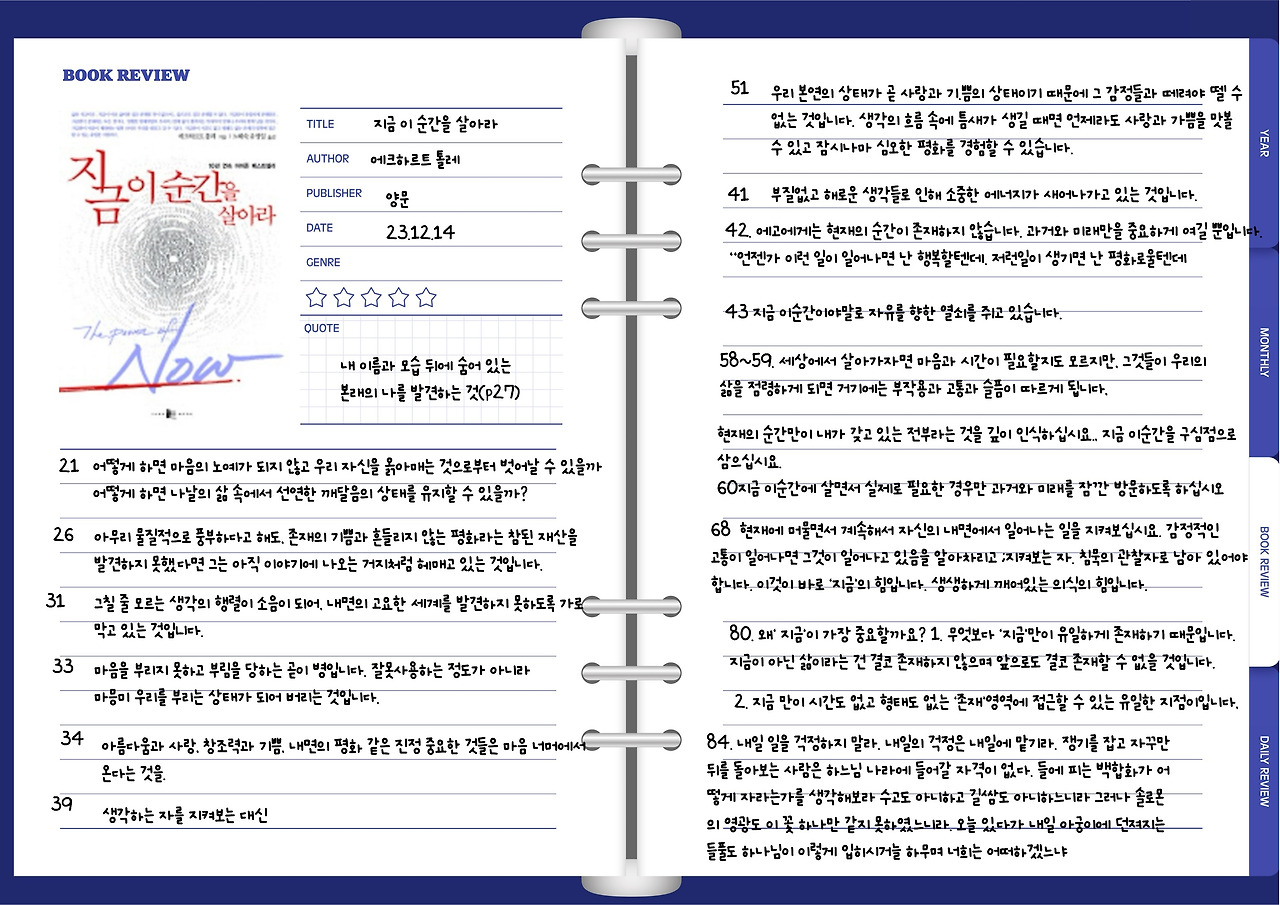 BOOK REVIEW
지금이 순간을
살아라
The power of
Now
TITLE 지금 이 순간을 살아라
AUTHOR 에크하르트 톨레
PUBLISHER 양문
DATE 23.12.14
GENRE
QUOTE
내 이름과 모습 뒤에 숨어 있는
본래의 나를 발견하는 것(p27)
21 어떻게 하면 마음의 노예가 되지 않고 우리 자신을 옭아매는 것으로부터 벗어날 수 있을까
어떻게 하면 나날의 삶 속에서 선연한 깨달음의 상태를 유지할 수 있을까?
26 아무리 물질적으로 풍부하다고 해도, 존재의 기쁨과 흔들리지 않는 평화라는 참된 재산을
발견하지 못했다면 그는 아직 이야기에 나오는 거지처럼 헤매고 있는 것입니다.
31 그칠 줄 모르는 생각의 행렬이 소음이 되어, 내면의 고요한 세계를 발견하지 못하도록 가로
막고 있는 것입니다.
33 마음을 부리지 못하고 부림을 당하는 곧이 병입니다. 잘못사용하는 정도가 아니라
마믕미 우리를 부리는 상태가 되어 버리는 것입니다.
34 아름다움과 사랑, 창조력과 기쁨, 내면의 평화 같은 진정 중요한 것들은 마음 너머에서
온다는 것을.
39 생각하는 자를 지켜보는 대신
51 우리 본연의 상태가 곧 사랑과 기.쁨의 상태이기 때문에 그 감정들과 떼려야 뗄 수
없는 것입니다. 생각의 흐름 속에 틈새가 생길 때면 언제라도 사랑과 가쁨을 맛볼
수 있고 잠시나마 심오한 평화를 경험할 수 있습니다.
41 부질없고 해로운 생각들로 인해 소중한 에너지가 새어나가고 있는 것입니다.
42. 에고에게는 현재의 순간이 존재하지 않습니다. 과거와 미래만을 중요하게 여길 뿐입니다.
“언젠가 이런 일이 일어나면 난 행복할텐데. 저런일이 생기면 난 평화로울텐데
43 지금 이순간이야말로 자유를 향한 열쇠를 쥐고 있습니다.
58~59. 세상에서 살아가자면 마음과 시간이 필요할지도 모르지만, 그것들이 우리의
삶을 점령하게 되면 거기에는 부작용과 고통과 슬픔이 따르게 됩니다.
현재의 순간만이 내가 갖고 있는 전부라는 것을 깊이 인식하십시요.. 지금 이순간을 구심점으로
삼으십시요.
60지금 이순간에 살면서 실제로 필요한 경우만 과거와 미래를 잠깐 방문하도록 하십시오
68 현재에 머물면서 계속해서 자신의 내면에서 일어나는 일을 지켜보십시요. 감정적인
고통이 일어나면 그것이 일어나고 있음을 알아차리고 ;지켜보는 자, 침묵의 관찰자로 남아 있어야
합니다. 이것이 바로 ‘지금’의 힘입니다. 생생하게 깨어있는 의식의 힘입니다.
80. 왜‘ 지금’이 가장 중요할까요? 1. 무엇보다 ‘지금’만이 유일하게 존재하기 때문입니다.
지금이 아닌 삶이라는 건 결코 존재하지 않으며 앞으로도 결코 존재할 수 없을 것입니다.
2. 지금 만이 시간도 없고 형태도 없는 ‘존재’영역에 접근할 수 있는 유일한 지점이입니다.
84. 내일 일을 걱정하지 말라. 내일의 걱정은 내일에 맡기라. 쟁기를 잡고 자꾸만
뒤를 돌아보는 사람은 하느님 나라에 들어갈 자격이 없다. 들에 피는 백합화가 어
떻게 자라는가를 생각해보라 수고도 아니하고 길쌈도 아니하느니라 그러나 솔로몬
의 영광도 이 꽃 하나만 같지 못하였느니라. 오늘 있다가 내일 아궁이에 던져지는
들풀도 하나님이 이렇게 입히시거늘 하우며 너희는 어떠하겠느냐
YEAR
MONTHLY
BOOK REVIEW
DAILY REVIEW